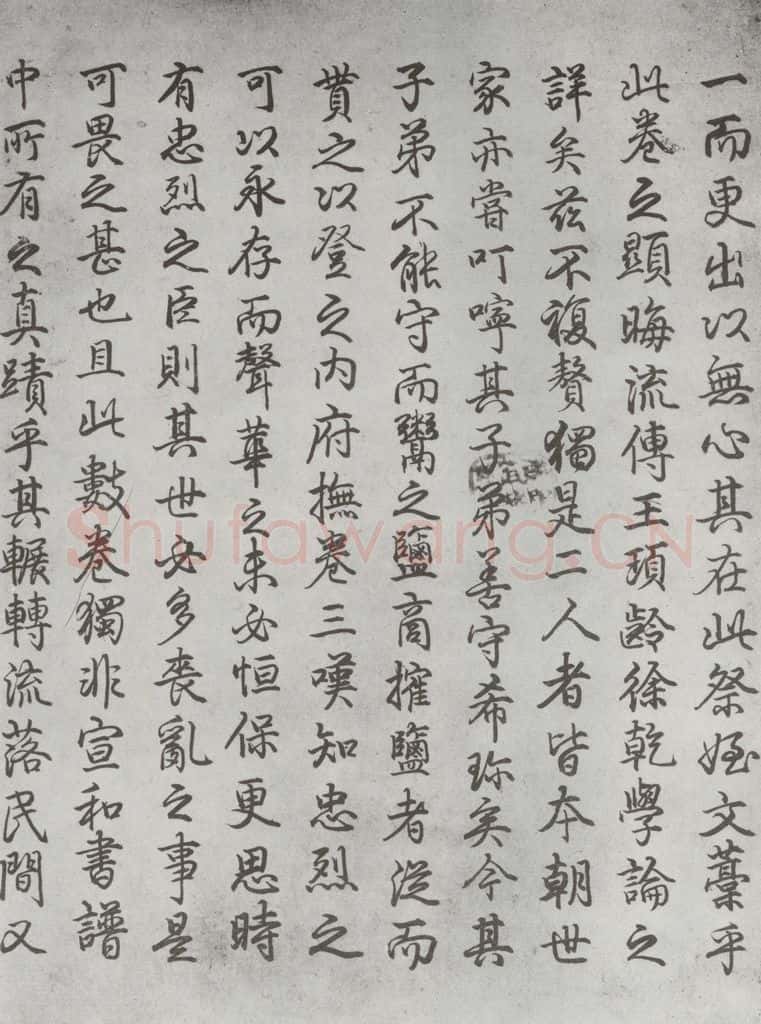 一而更出以無心其在此祭姪文藁乎
此卷之顯晦流傳王頊齡徐乾學論之
詳矣茲不複贅獨是二人者皆本朝世
家亦嘗叮嚀其子弟善守希珎矣今其
子弟不能守而鬻之鹽商擁鹽者從而
貰之以登之內府撫卷三嘆知忠烈之
可以永存而聲華之未必恒保更思時
有忠烈之臣則其世必多喪亂之事是
可畏之甚也且此數卷獨非宣和書譜
中所有之真蹟乎其輾轉流落民間又
Shufawang.CN